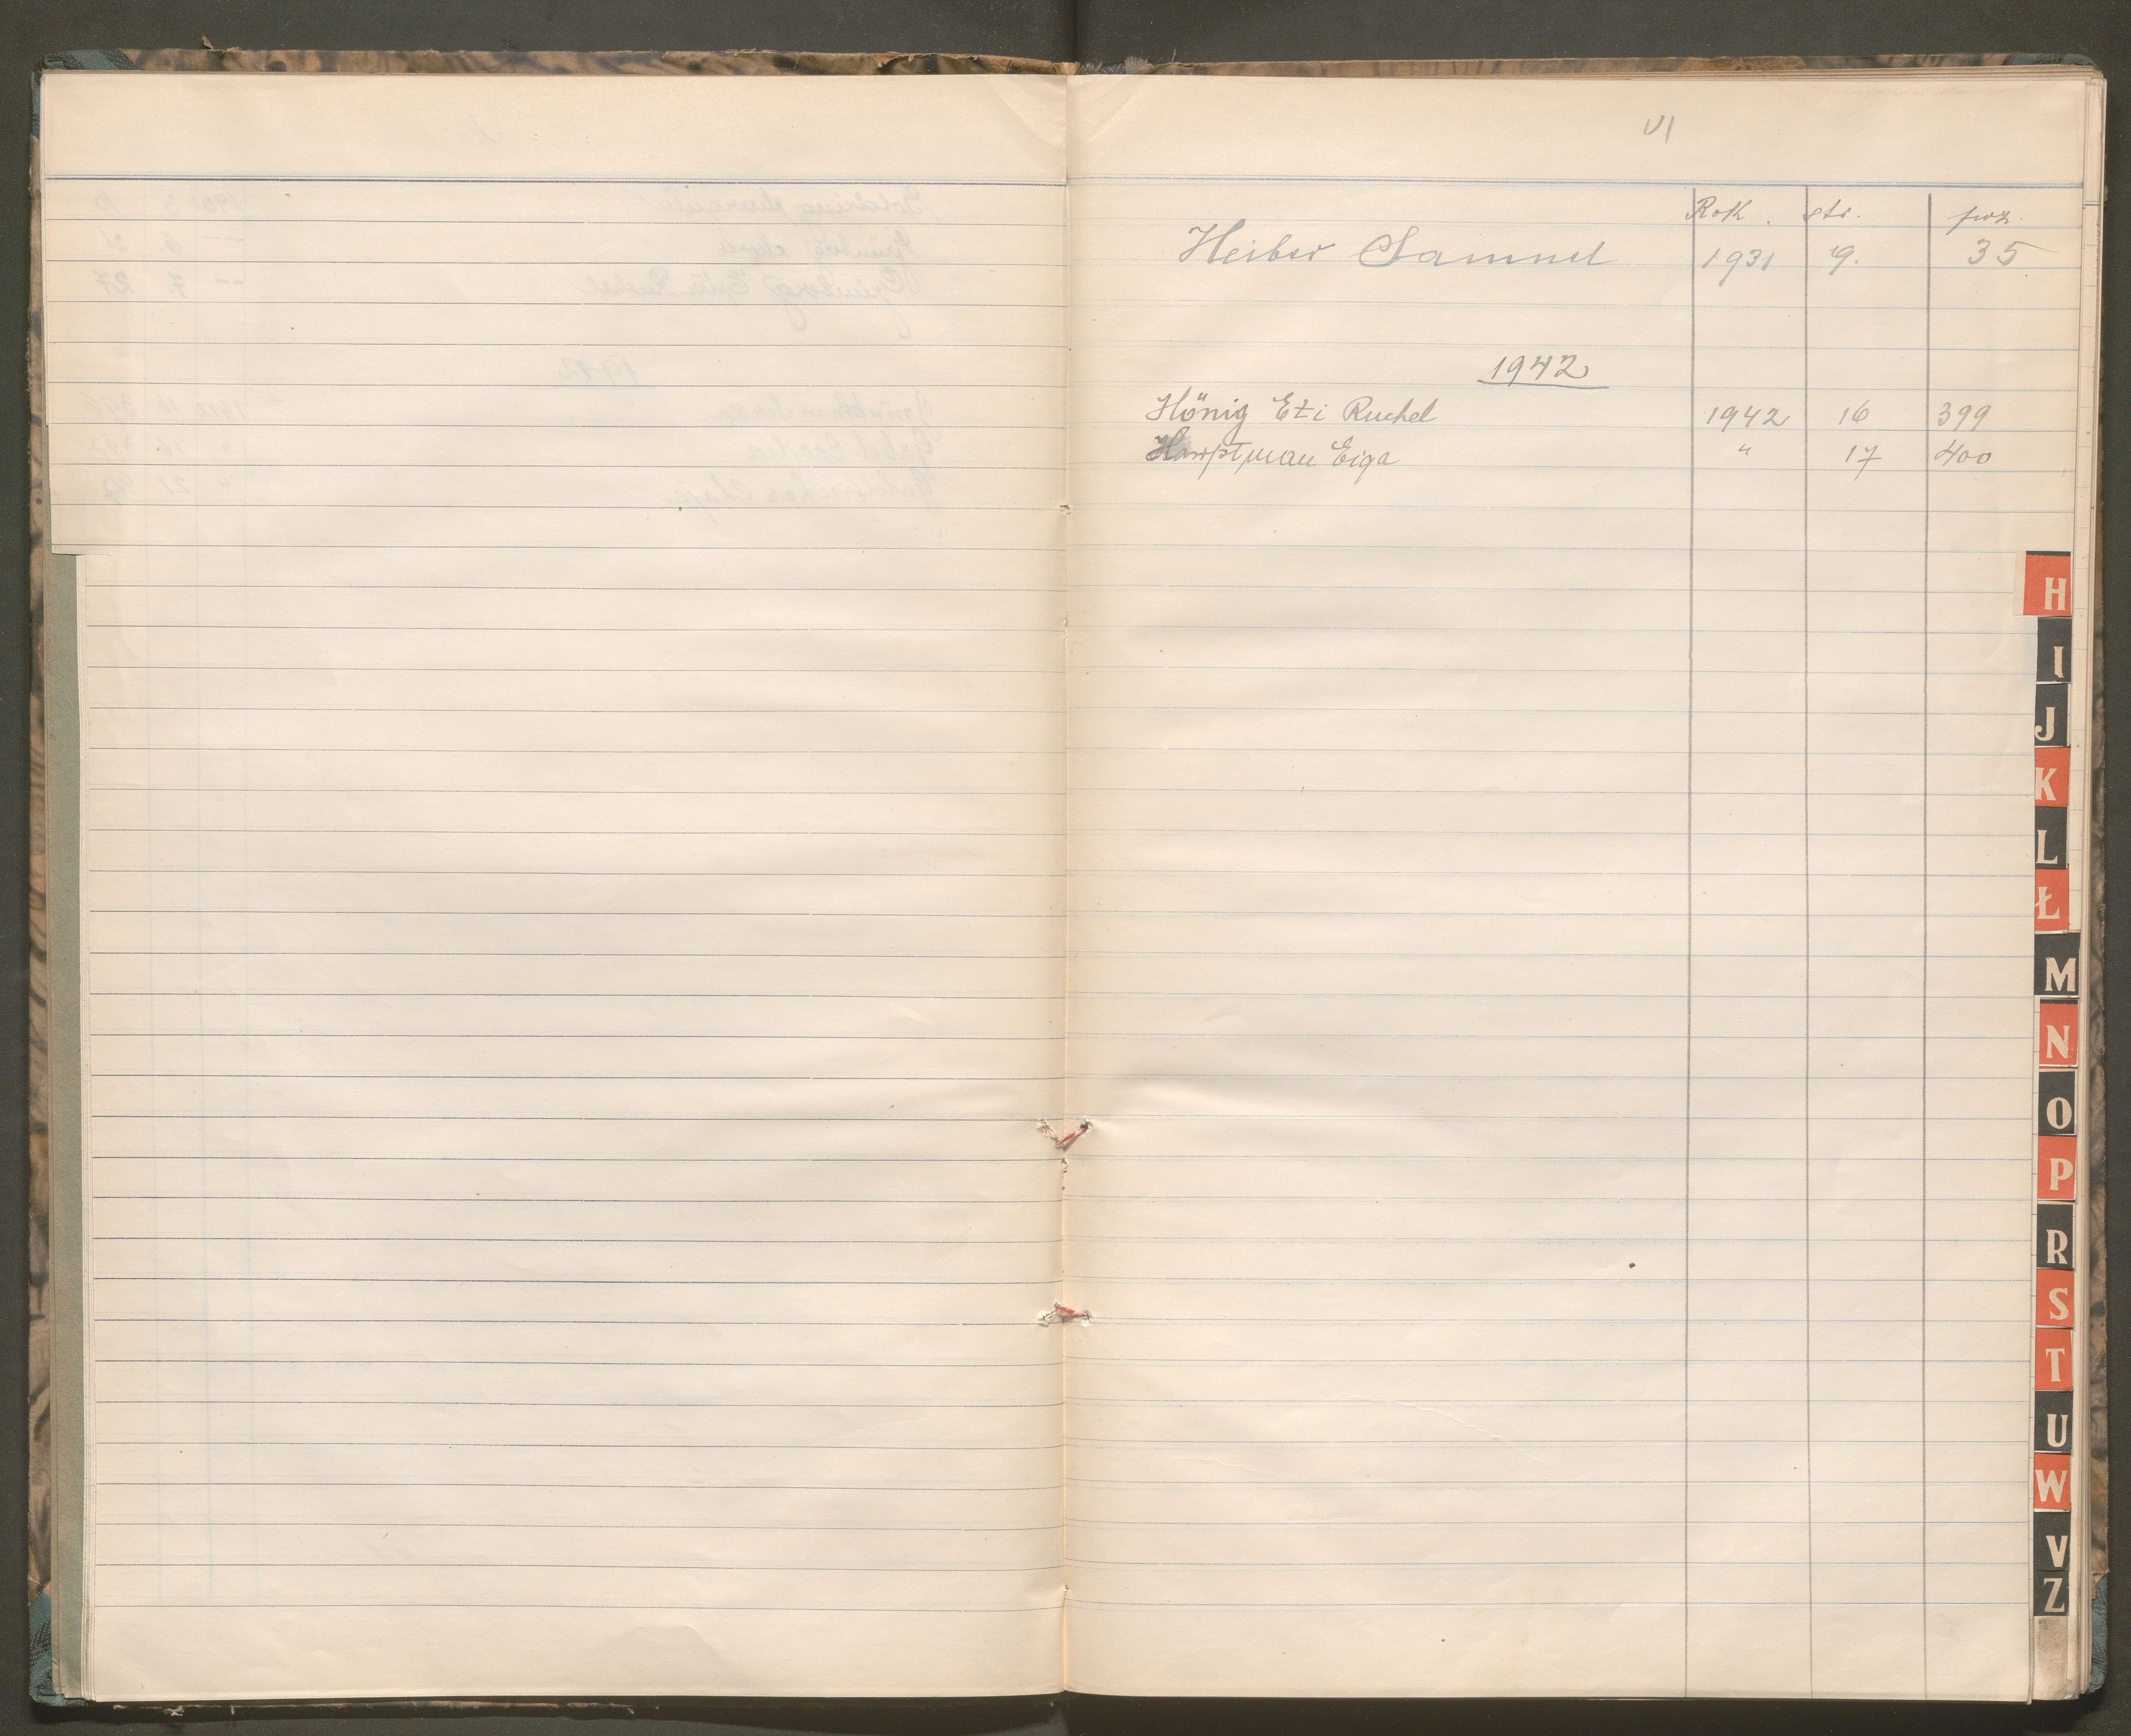 VI
Rok. str. poz.
Heiber Samuel 1931 9. 35
1942
Hönig Eti Ruchel 1942 16 399
Hauptman Eiga " 17 400
H
I
J
K
L
Ł
M
N
O
P
R
S
T
U
W
V
Z